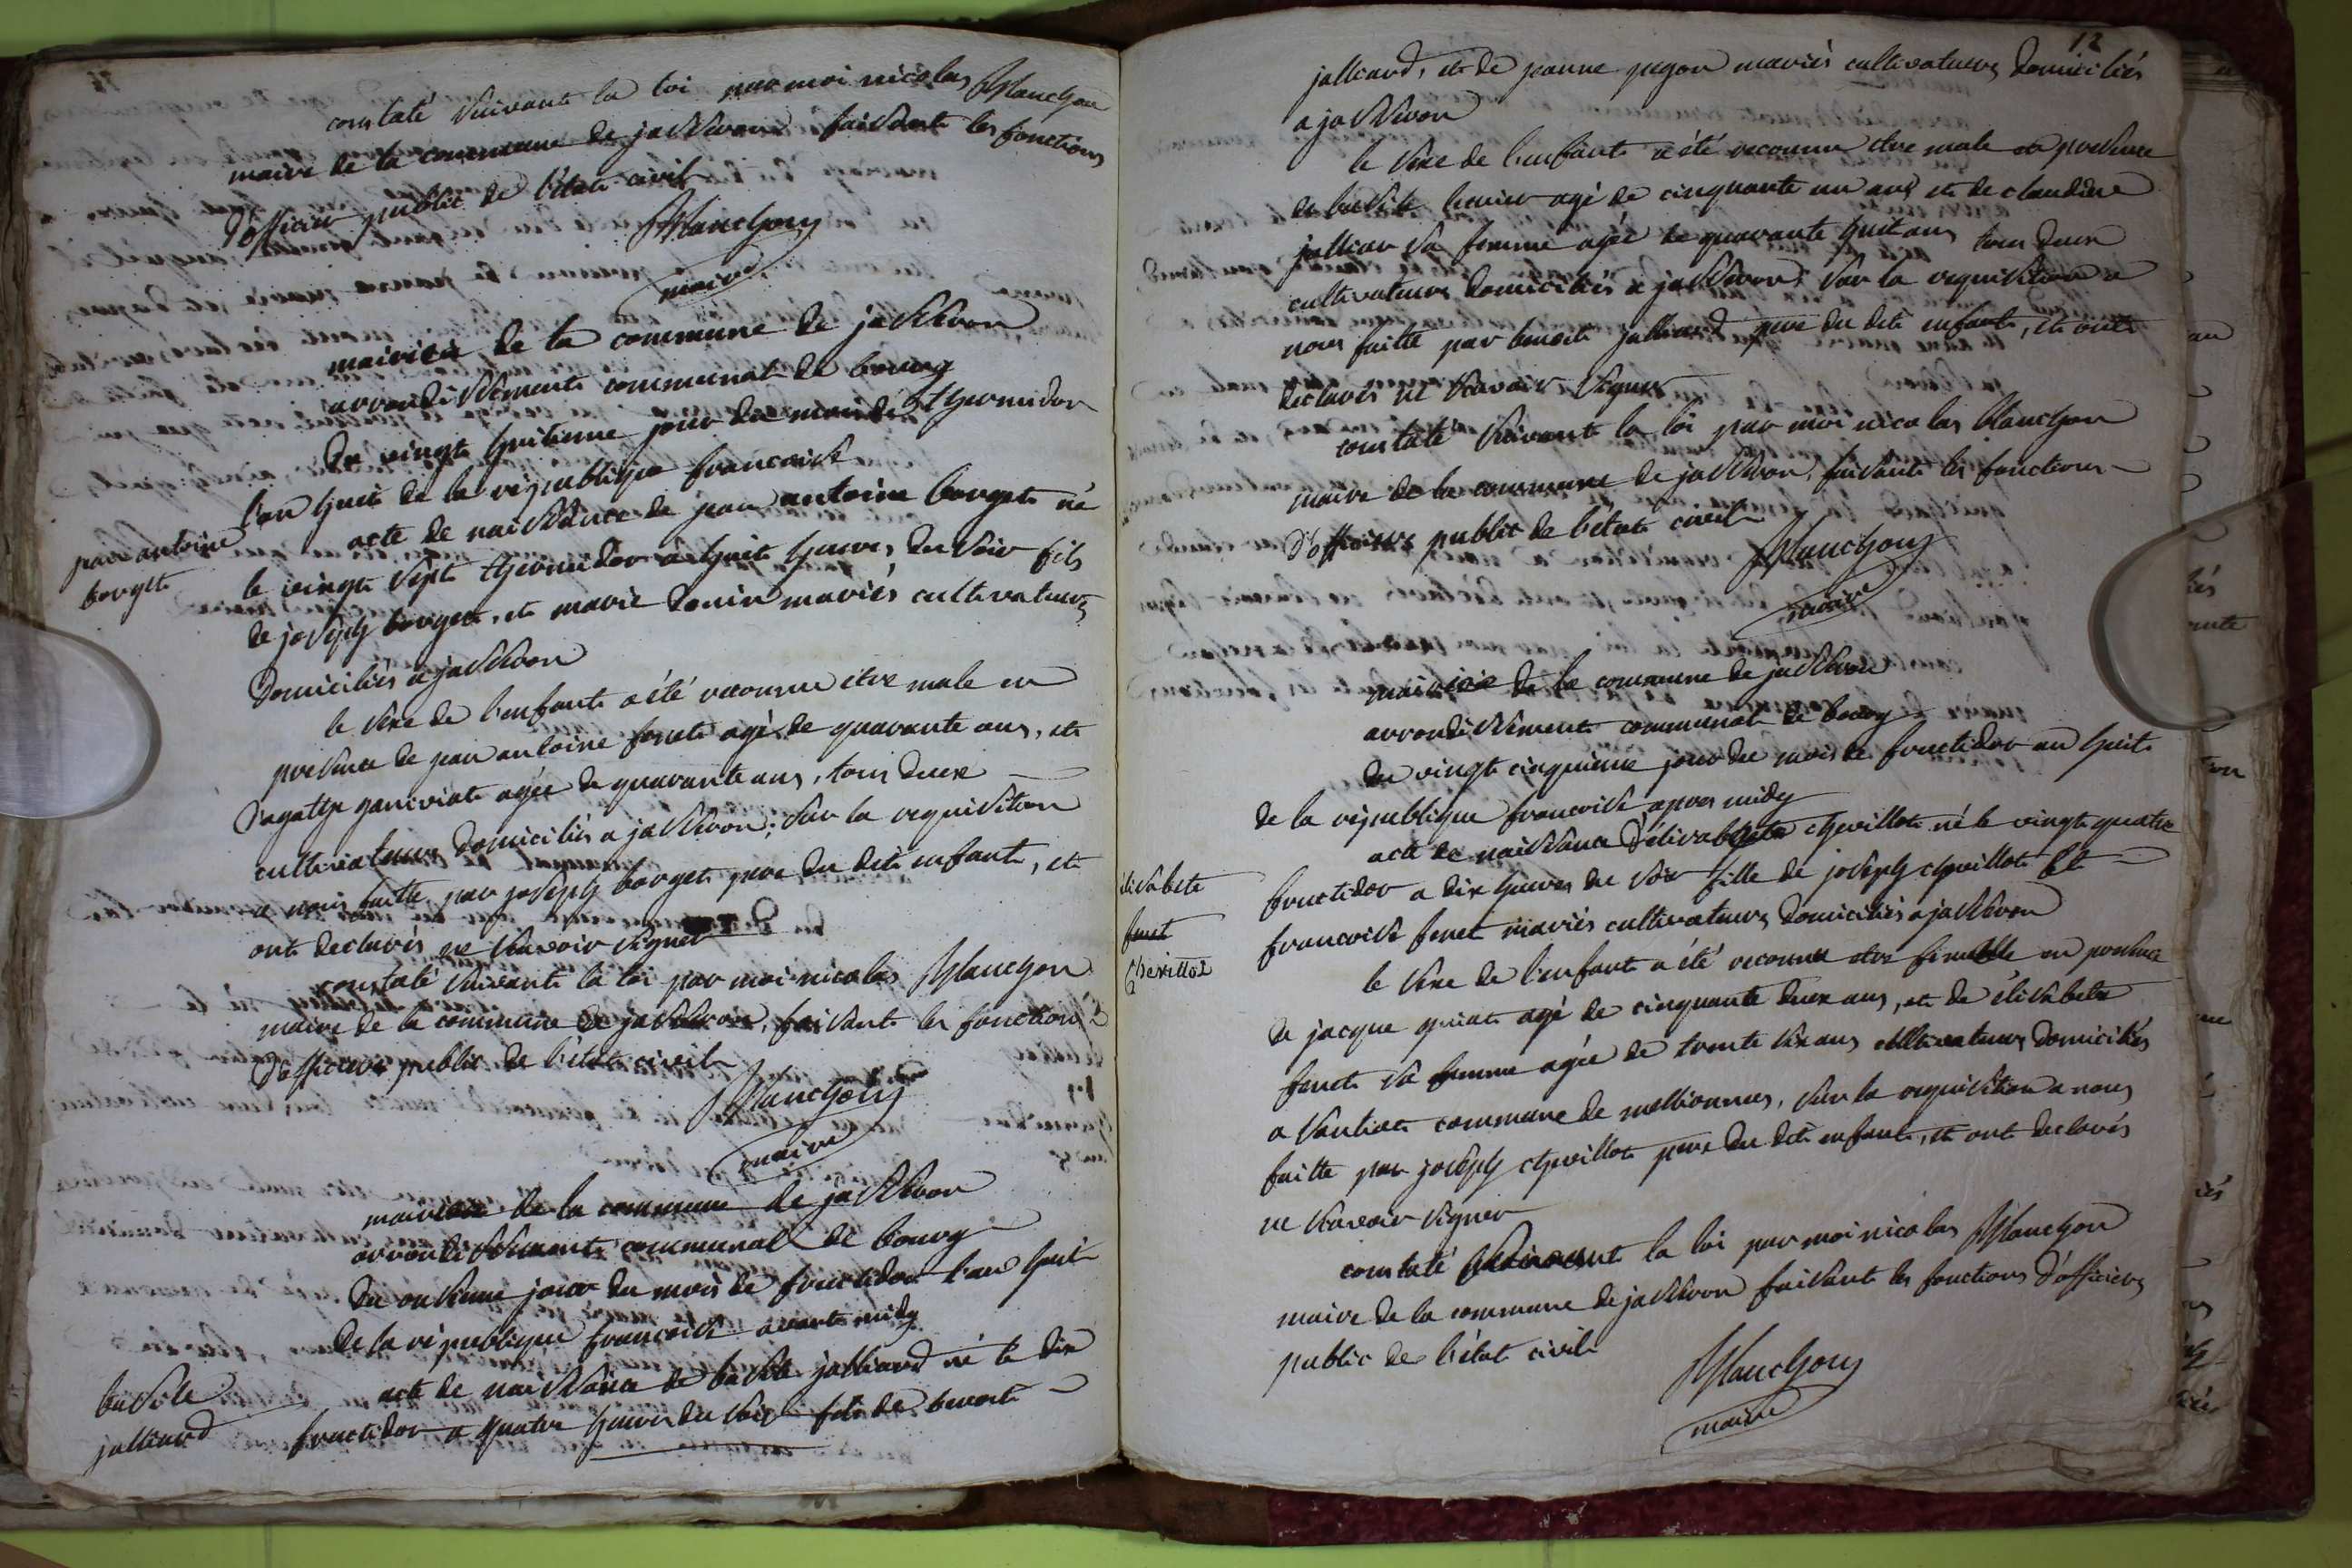 constaté suivant la loi par moi nicolas Blanchon
maire de la commune de jasseron faisant les fonctions
d'officier public de l'état civil
Blanchon
maire
mairiere de la commune de jasseron
arrondissement communal de bourg
Du vingt huitieme jour du mois de thermidor
l'an huit de la république francoise
jean antoine
borget
acte de naissance de jean antoine borget né
le vingt sept thermidor a huit heures du soir fils
de joseph borget, et marie donin mariés cultivateurs
Domiciliés a jasseron
le sexe de l'enfant a été reconnu etre male en
presence de jean antoine feret agé de quarante ans, et
d'agathe ganiviat agée de quarante ans, tous deux
cultivateurs Domiciliés a jasseron; sur la requisition
a nous faitte par joseph borget pere du dit enfant, et
ont declarés ne savoir signer
constaté suivant la loi par moi nicolas Blanchon
maire de la commune de jasseron, faisant les fonctions
d'officier public de l'état civil
Blanchon
maire
mairiere de la commune de jasseron
arrondissement communal de bourg
Du onsieme jour du mois de fructidor l'an huit
de la république francoise avant midy
basile
jalliard
acte de naissance de basile jalliard né le dix
fructidor a quatre heures du soir fils de benoit
12
jalliard, et de jeanne pegon mariés cultivateurs domiciliés
a jasseron
le sexe de l'enfant a été reconnu etre male en presence
de basile agé de cinquante un ans et de claudine
jalliar sa femme agée de quarante huit ans tous deux
cultivateurs domiciliés a jasseron sur la requisition a
nous faitte par benoit jalliard pere du dit enfant, et ont
declarés ne savoir signer
constaté suivant la loi par moi nicolas blanchon
maire de la commune de jasseron, faisant les fonctions
d'officier public de l'état civil
Blanchon
maire
mairiere de la commune de jasseron
arrondissement communal de bourg
du vingt cinquieme jour du mois de fructidor an huit
de la république francoise apres midy
elisabete
feret
Chevillot
acte de naissance d'élisabete chevillot né le vingt quatre
fructidor a dix heures du soir fille de joseph chevillot Et
francoise feret mariés cultivateurs domiciliés a jasseron
le sexe de l'enfant a été reconnu etre femelle en presence
de jacque guiat agé de cinquante deux ans, et de élisabete
feret sa femme agée de trente six ans cultivateurs domiciliés
a Santiat commune de mellionnas, sur la requisition a nous
faitte par joseph chevillot pere du dit enfant, et ont declarés
ne savoir signer
constaté suivant la loi par moi nicolas Blanchon
maire de la commune de jasseron faisant les fonctions d'officier
public de l'état civil
Blanchon
maire